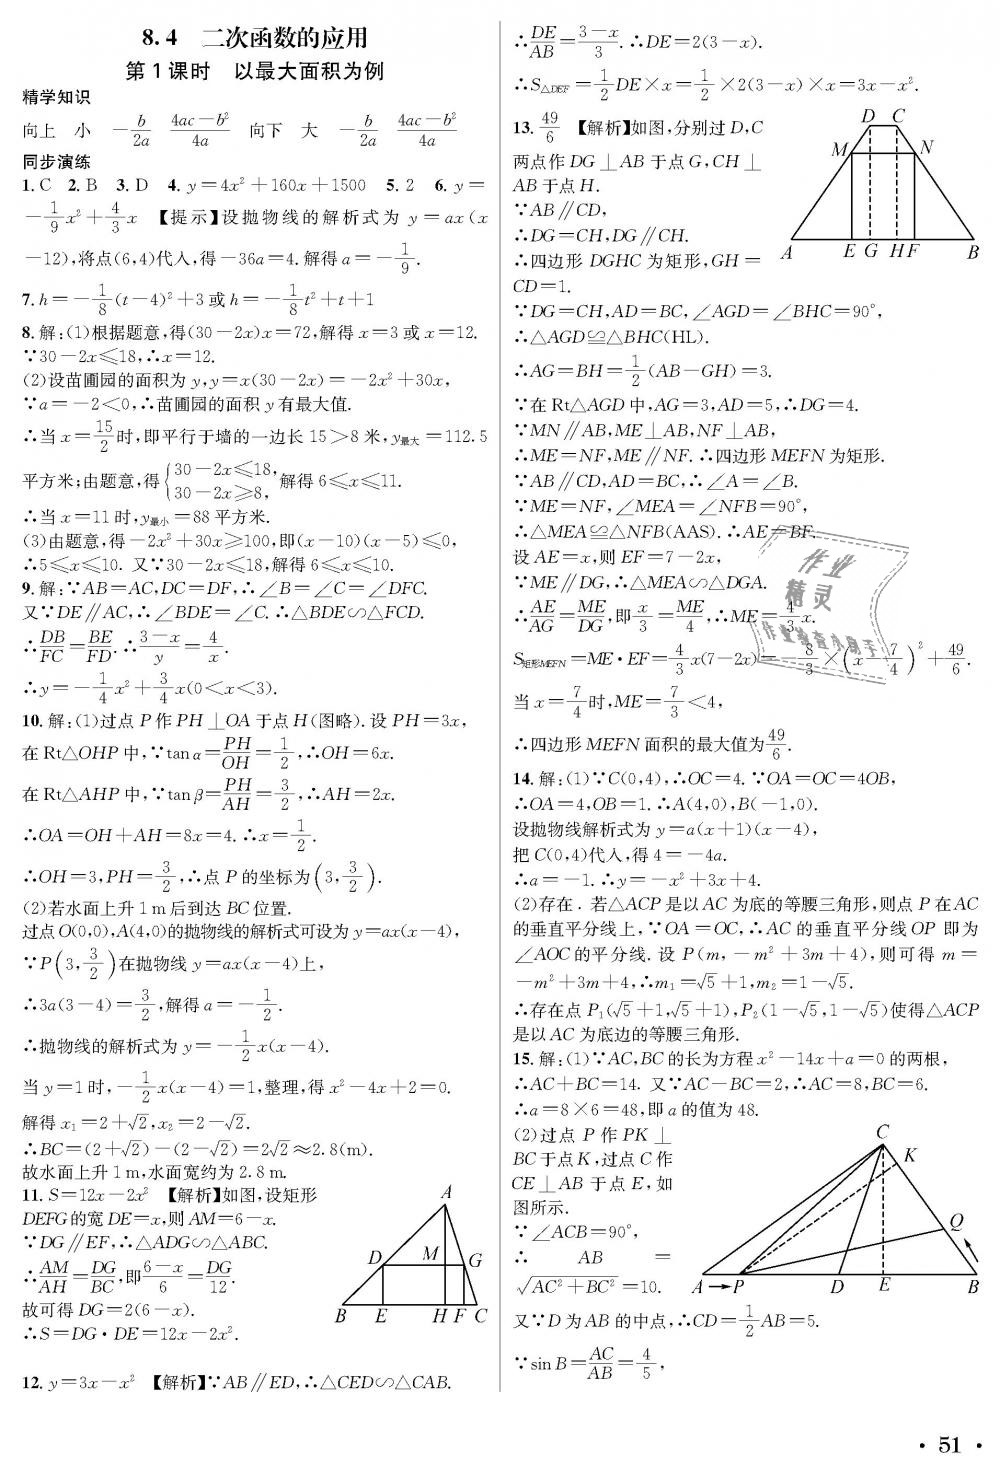 8.4 二次函数的应用
第1课时 以最大面积为例
精学知识
向上 小 $-\frac{b}{2a}$ $\frac{4ac-b^2}{4a}$ 向下 大 $-\frac{b}{2a}$ $\frac{4ac-b^2}{4a}$
同步演练
1. C 2. B 3. D 4. y=4x²+160x+1500 5. 2 6. y=
$-\frac{1}{9}$x²+$\frac{4}{3}$x 【提示】设抛物线的解析式为 y=ax(x
-12),将点(6,4)代入,得-36a=4.解得a=$-\frac{1}{9}$.
7. h=$-\frac{1}{8}$(t-4)²+3或h=$-\frac{1}{8}$t²+t+1
8. 解:(1)根据题意,得(30-2x)x=72,解得x=3或x=12.
∵30-2x≤18,∴x=12.
(2)设苗圃园的面积为y,y=x(30-2x)=-2x²+30x,
∵a=-2<0,∴苗圃园的面积y有最大值.
∴当x=$\frac{15}{2}$时,即平行于墙的一边长15>8米,y最大=112.5
平方米;由题意,得{30-2x≤18, 30-2x≥8, 解得6≤x≤11.
∴当x=11时,y最小=88平方米.
(3)由题意,得-2x²+30x≥100,即(x-10)(x-5)≤0,
∴5≤x≤10. 又∵30-2x≤18,解得6≤x≤10.
9. 解:∵AB=AC,DC=DF,∴∠B=∠C=∠DFC.
又∵DE∥AC,∴∠BDE=∠C.∴△BDE∽△FCD.
∴$\frac{DB}{FC}$=$\frac{BE}{FD}$.∴$\frac{3-x}{y}$=$\frac{4}{x}$.
∴y=$-\frac{1}{4}$x²+$\frac{3}{4}$x(0<x<3).
10. 解:(1)过点P作PH⊥OA于点H(图略).设PH=3x,
在Rt△OHP中,∵tanα=$\frac{PH}{OH}$=$\frac{1}{2}$,∴OH=6x.
在Rt△AHP中,∵tanβ=$\frac{PH}{AH}$=$\frac{3}{2}$,∴AH=2x.
∴OA=OH+AH=8x=4.∴x=$\frac{1}{2}$.
∴OH=3,PH=$\frac{3}{2}$,∴点P的坐标为(3,$\frac{3}{2}$).
(2)若水面上升1 m后到达BC位置.
过点O(0,0),A(4,0)的抛物线的解析式可设为y=ax(x-4),
∵P(3,$\frac{3}{2}$)在抛物线y=ax(x-4)上,
∴3a(3-4)=$\frac{3}{2}$,解得a=$-\frac{1}{2}$.
∴抛物线的解析式为y=$-\frac{1}{2}$x(x-4).
当y=1时,$-\frac{1}{2}$x(x-4)=1,整理,得x²-4x+2=0.
解得x₁=2+√2,x₂=2-√2.
∴BC=(2+√2)-(2-√2)=2√2≈2.8(m).
故水面上升1 m,水面宽约为2.8 m.
11. S=12x-2x² 【解析】如图,设矩形
DEFG的宽DE=x,则AM=6-x.
∵DG∥EF,∴△ADG∽△ABC.
∴$\frac{AM}{AH}$=$\frac{DG}{BC}$,即$\frac{6-x}{6}$=$\frac{DG}{12}$.
故可得DG=2(6-x).
∴S=DG·DE=12x-2x².
A
D M G
B E H F C
12. y=3x-x² 【解析】∵AB∥ED,∴△CED∽△CAB.
∴$\frac{DE}{AB}$=$\frac{3-x}{3}$.∴DE=2(3-x).
∴S△DEF=$\frac{1}{2}$DE×x=$\frac{1}{2}$×2(3-x)×x=3x-x².
13. $\frac{49}{6}$ 【解析】如图,分别过D,C
两点作DG⊥AB于点G,CH⊥
AB于点H.
∵AB∥CD,
∴DG=CH,DG∥CH.
∴四边形DGHC为矩形,GH=
CD=1.
D C
M N
A E G H F B
∵DG=CH,AD=BC,∠AGD=∠BHC=90°,
∴△AGD≌△BHC(HL).
∴AG=BH=$\frac{1}{2}$(AB-GH)=3.
∵在Rt△AGD中,AG=3,AD=5,∴DG=4.
∵MN∥AB,ME⊥AB,NF⊥AB,
∴ME=NF,ME∥NF.∴四边形MEFN为矩形.
∵AB∥CD,AD=BC,∴∠A=∠B.
∵ME=NF,∠MEA=∠NFB=90°,
∴△MEA≌△NFB(AAS).∴AE=BF.
设AE=x,则EF=7-2x,
∵ME∥DG,∴△MEA∽△DGA.
∴$\frac{AE}{AG}$=$\frac{ME}{DG}$,即$\frac{x}{3}$=$\frac{ME}{4}$,∴ME=$\frac{4}{3}$x.
S矩形MEFN=ME·EF=$\frac{4}{3}$x(7-2x)=$-\frac{8}{3}$×(x-$\frac{7}{4}$)²+$\frac{49}{6}$.
当x=$\frac{7}{4}$时,ME=$\frac{7}{3}$<4,
∴四边形MEFN面积的最大值为$\frac{49}{6}$.
14. 解:(1)∵C(0,4),∴OC=4.∵OA=OC=4OB,
∴OA=4,OB=1.∴A(4,0),B(-1,0).
设抛物线解析式为y=a(x+1)(x-4),
把C(0,4)代入,得4=-4a.
∴a=-1.∴y=-x²+3x+4.
(2)存在. 若△ACP是以AC为底的等腰三角形,则点P在AC
的垂直平分线上,∵OA=OC,∴AC的垂直平分线OP即为
∠AOC的平分线. 设P(m,-m²+3m+4),则可得m=
-m²+3m+4,∴m₁=√5+1,m₂=1-√5.
∴存在点P₁(√5+1,√5+1),P₂(1-√5,1-√5)使得△ACP
是以AC为底边的等腰三角形.
15. 解:(1)∵AC,BC的长为方程x²-14x+a=0的两根,
∴AC+BC=14. 又∵AC-BC=2,∴AC=8,BC=6.
∴a=8×6=48,即a的值为48.
(2)过点P作PK⊥
BC于点K,过点C作
CE⊥AB于点E,如
图所示.
∵∠ACB=90°,
∴ AB =
$\sqrt{AC^2+BC^2}$=10.
C
K
Q
A→P D E B
又∵D为AB的中点,∴CD=$\frac{1}{2}$AB=5.
∵sin B=$\frac{AC}{AB}$=$\frac{4}{5}$,
作业
精灵
作业检查小助手
· 51 ·